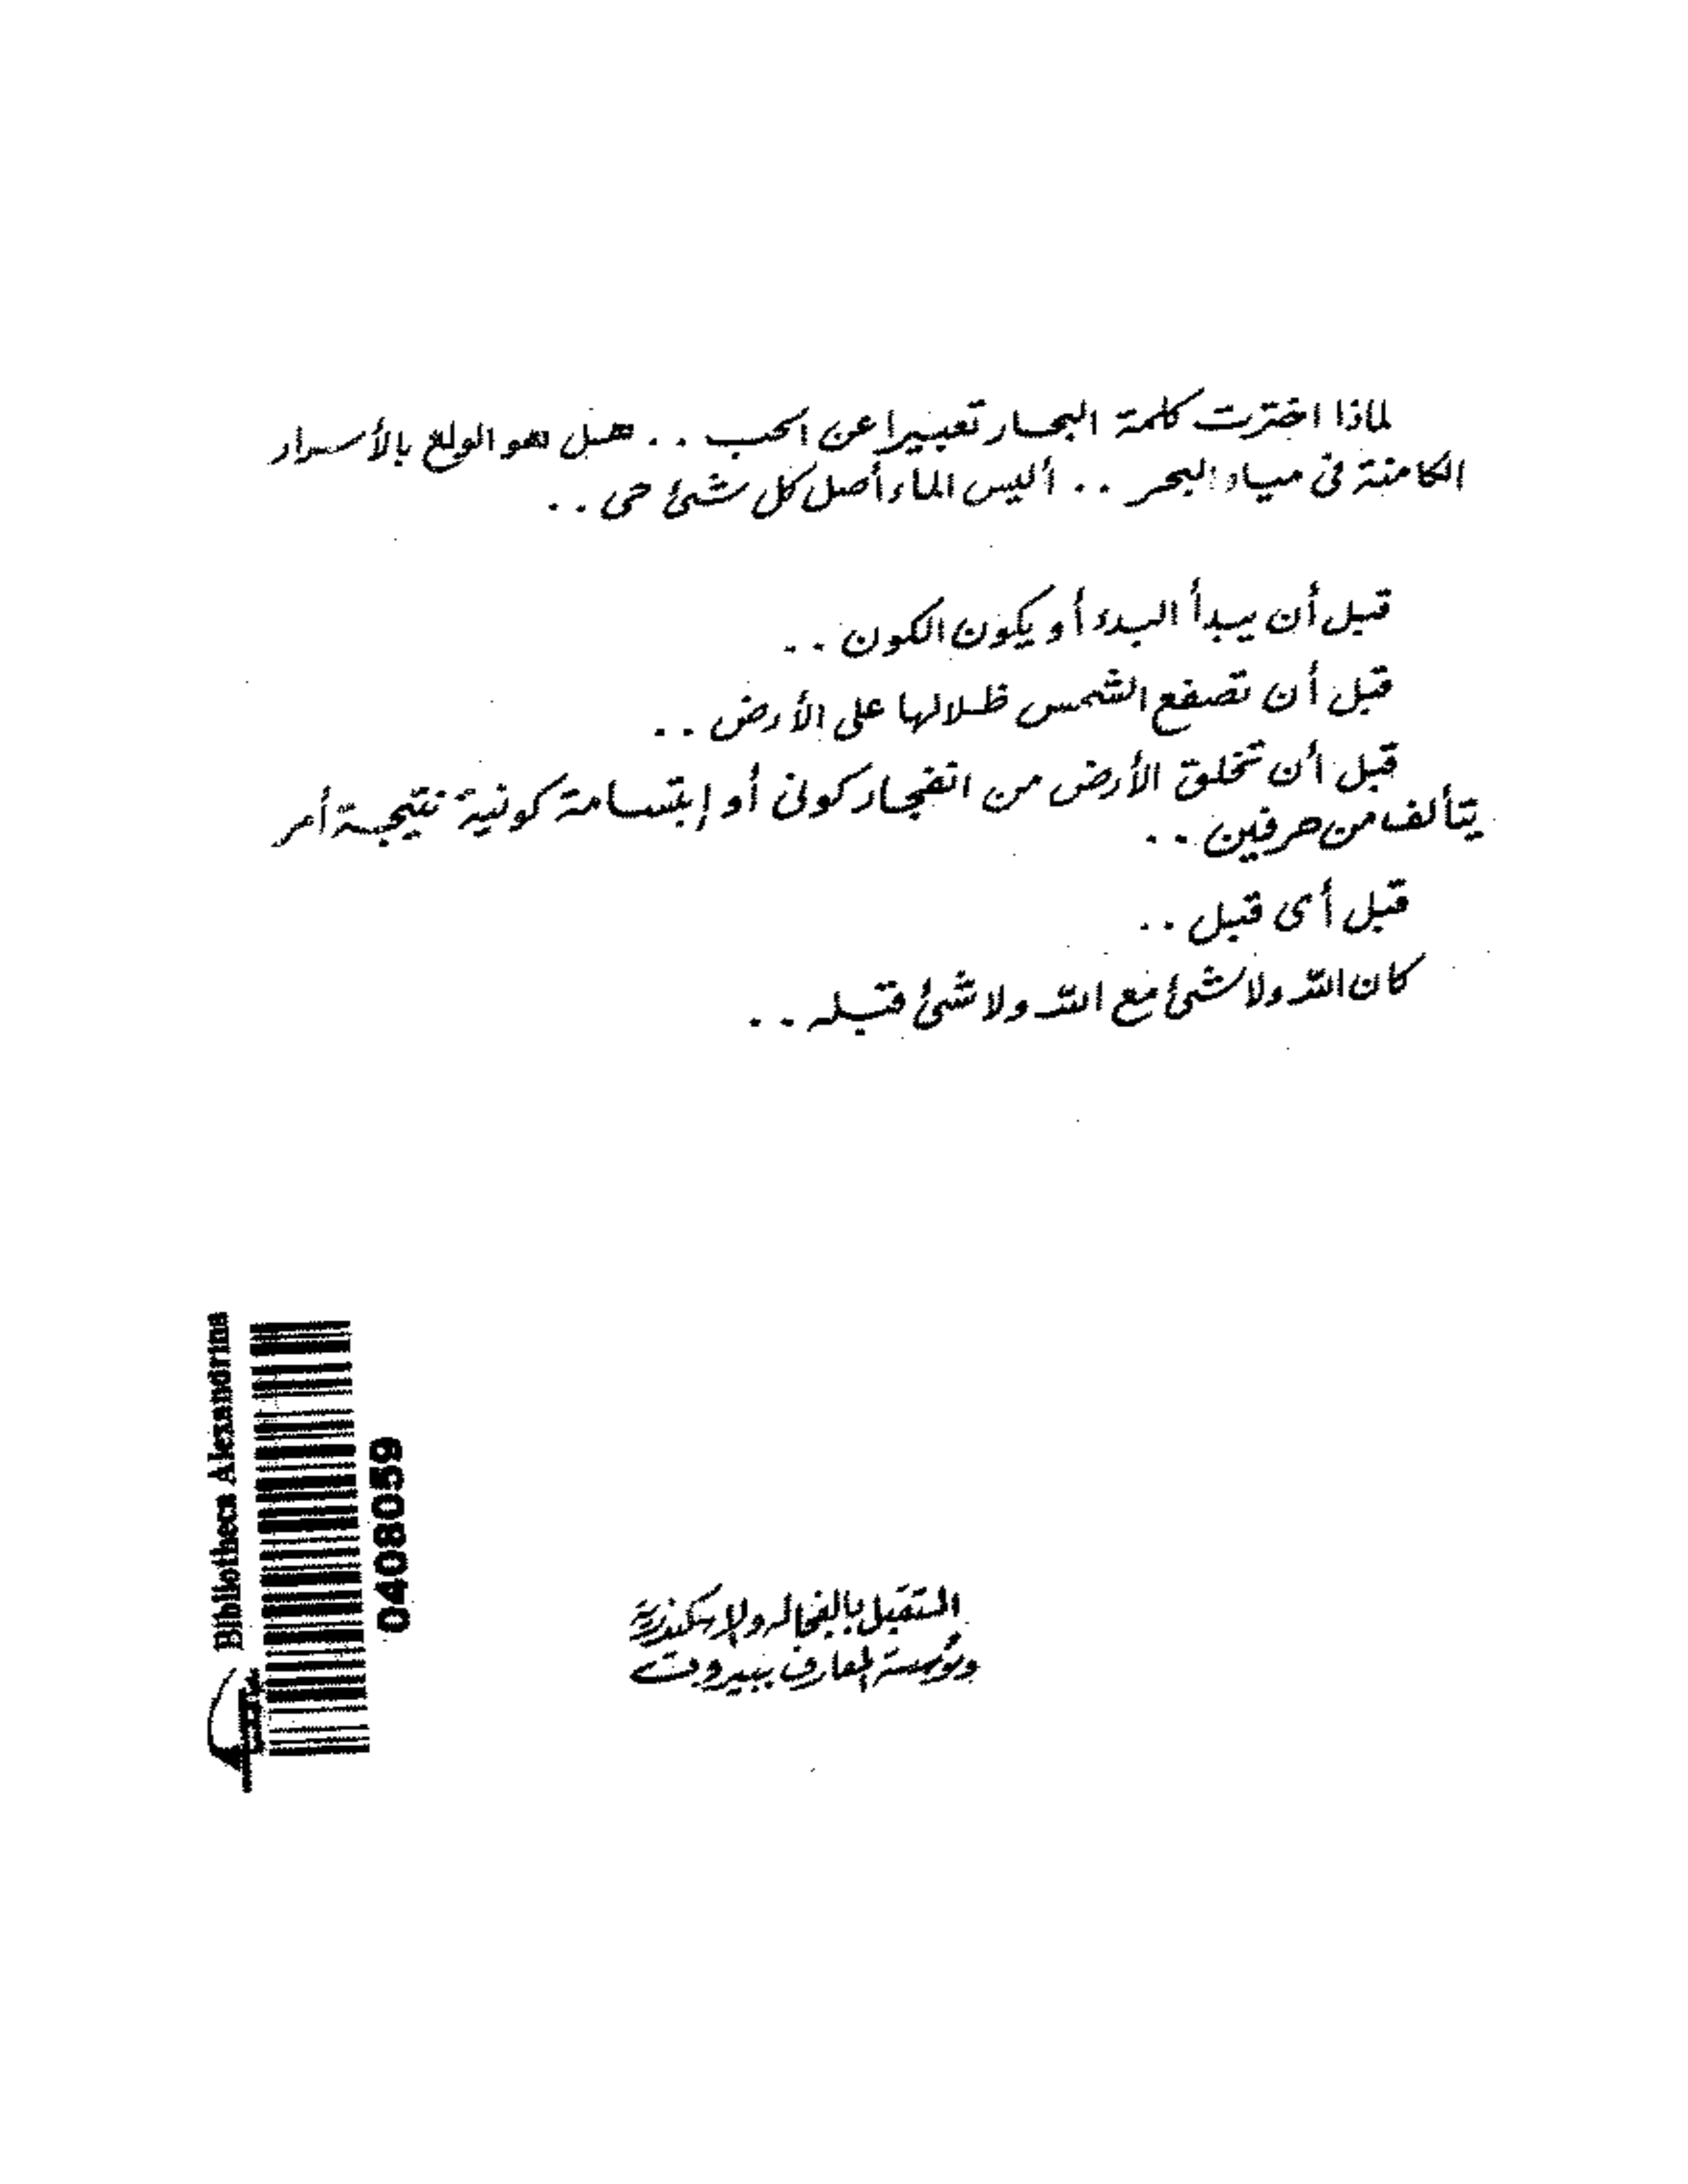 لماذا اخترت كلمة البحار تعبيرا عن الحب . . هل هو الولع بالأسرار
الكامنة فى مياه البحر . . أليس الماء أصل كل شئ حى . .
قبل أن يبدأ البدء أو يكون الكون . .
قبل أن تصفع الشمس ظلالها على الأرض . .
قبل أن تخلق الأرض من انفجار كونى أو إبتسامة كونية نتيجة أمر
يتألف من حرفين . .
قبل أى قبل . .
كان الله ولا شئ مع الله ولا شئ قبله . .
Bibliotheca Alexandrina
0408059
المستقبل بالفجاله والإسكندرية
ومؤسسة المعارف ببيروت